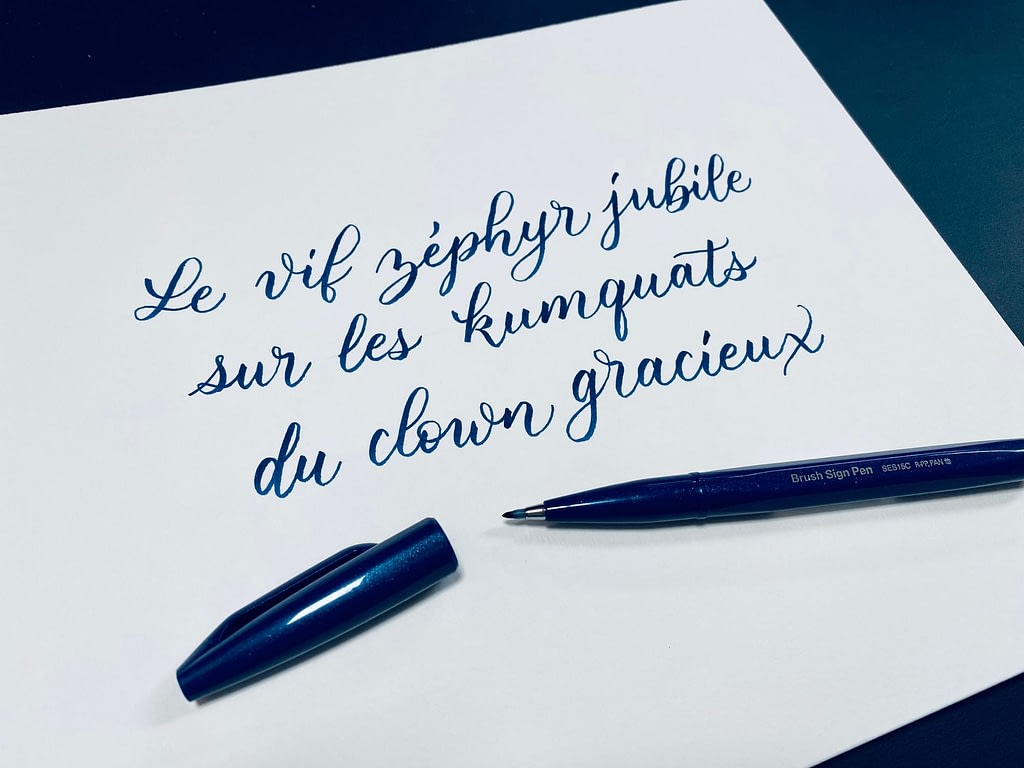 Le vif zéphyr jubile
sur les kumquats
du clown gracieux
Brush Sign Pen SES15C